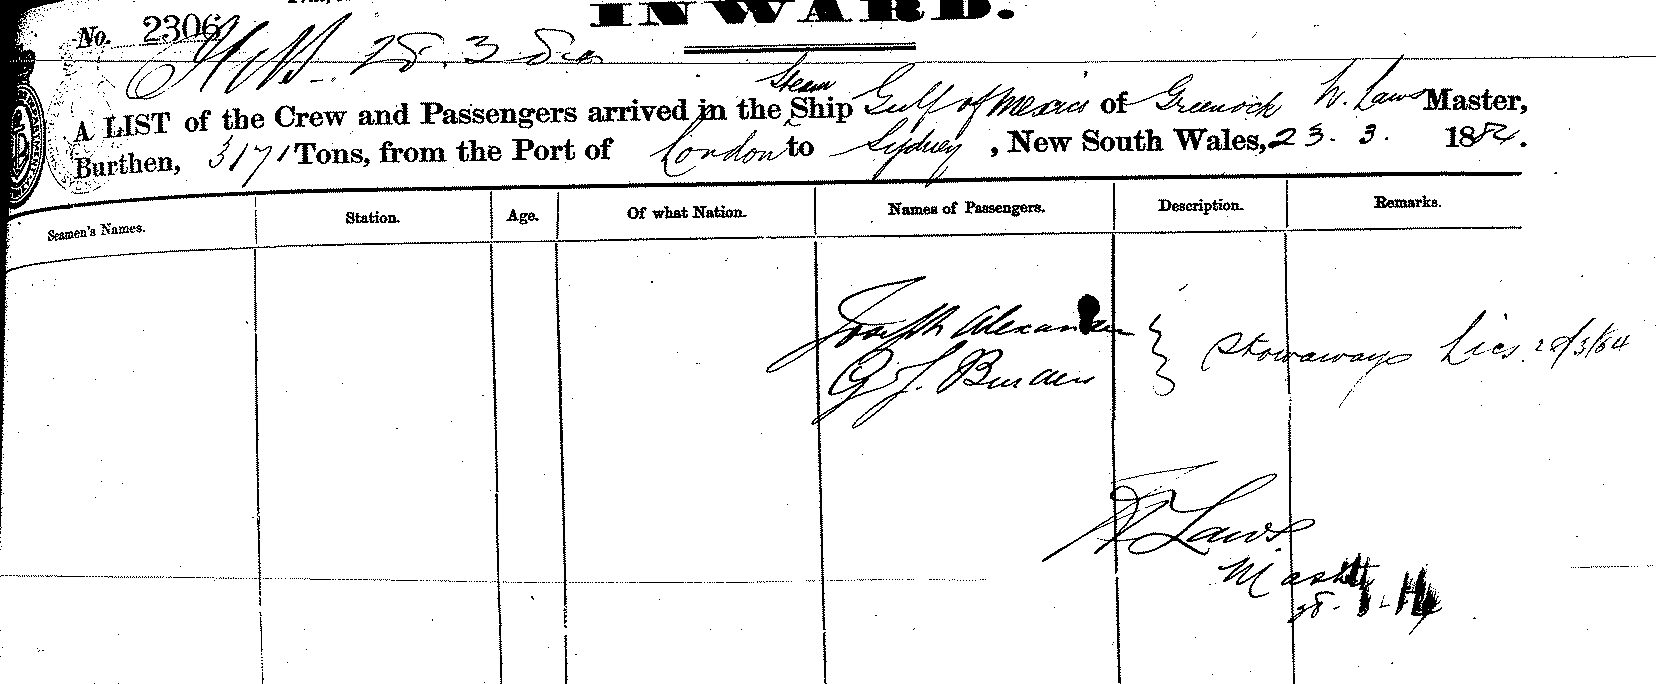 INWARD.
No. 2306
28. 3 84
A LIST of the Crew and Passengers arrived in the Steam Ship Gulf of Mexico of Greenock W. Laws Master,
Burthen, 3171 Tons, from the Port of London to Sydney, New South Wales, 23. 3. 1884.
Seamen's Names. Station. Age. Of what Nation. Names of Passengers. Description. Remarks.
Joseph Alexander
Stowaways 28/3/84
G J. Burden
W Laws
Master
28.